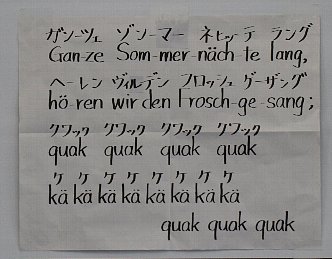 ガンーツェ ゾンーマー ネヒッーテ ラング
Gan-ze Som-mer-näch-te lang,
ヘーレン ヴィルデン フロッシュ ゲーザング
hö-ren wir den Frosch-ge-sang;
クワァック クワァック クワァック クワァック
quak quak quak quak
ケ ケ ケ ケ ケ ケ ケ ケ
kä kä kä kä kä kä kä kä
quak quak quak